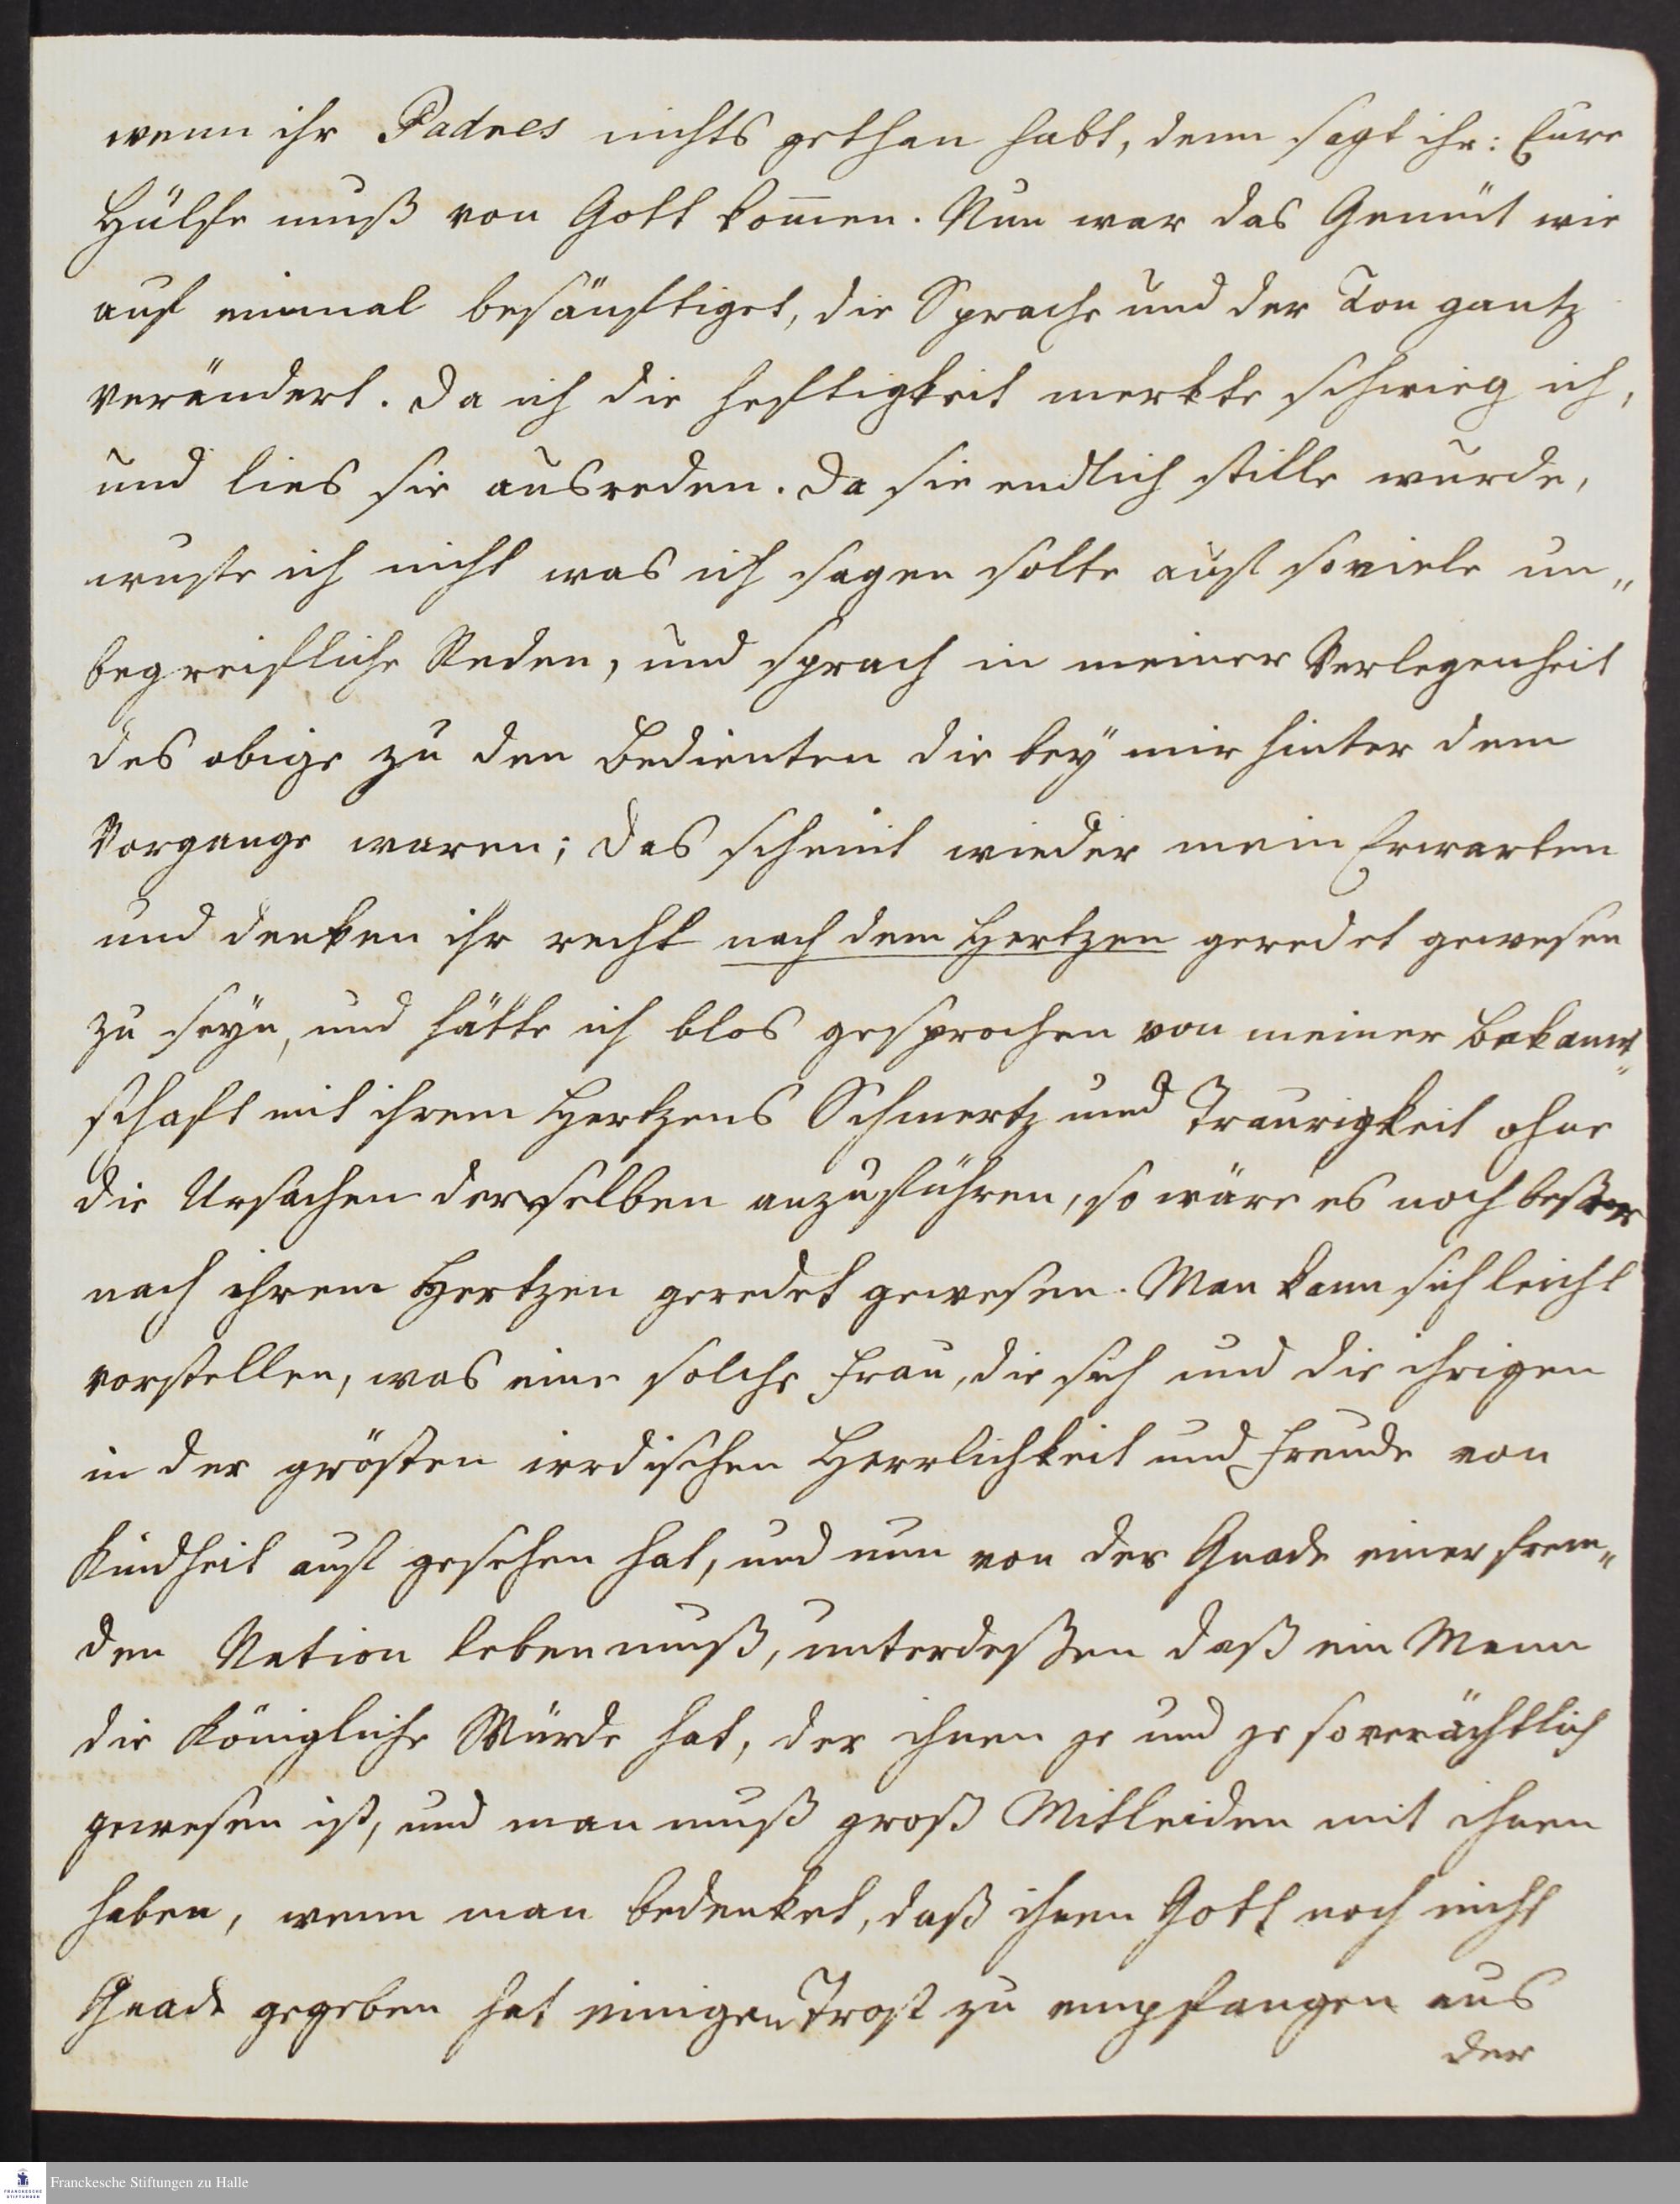 wenn ihr Padres nichts gethan habt, denn sagt ihr: Eure
Hülfe muß von Gott kom̅en. Nun war das Gemüt wie
auf einmal besänftiget, die Sprache und der Ton gantz
verändert. Da ich die Heftigkeit merkte schwieg ich,
und lies sie ausreden. Da sie endlich stille wurde,
wuste ich nicht was ich sagen solte auf soviele un„
begreifliche Reden, und sprach in meiner Verlegenheit
das obige zu den Bedienten die bey mir hinter dem
Vorgange waren; das scheint wieder mein Erwarten
und denken ihr recht nach dem Hertzen geredet gewesen
zu seyn, und hätte ich blos gesprochen von meiner Bekannt„
schaft mit ihrem Hertzens Schmertz und Traurigkeit ohne
die Ursachen derselben anzuführen, so wäre es noch beßer
nach ihrem Hertzen geredet gewesen. Man kann sich leicht
vorstellen, was eine solche Frau, die sich und die ihrigen
in der grösten irrdischen Herrlichkeit und Freude von
Kindheit auf gesehen hat, und nun von der Gnade einer frem„
den Nation leben muß, unterdeßen daß ein Mann
die Königliche Würde hat, der ihnen je und je so verächtlich
gewesen ist, und man muß groß Mitleiden mit ihnen
haben, wenn man bedenket, daß ihnen Gott noch nicht
Gnade gegeben hat einigen Trost zu empfangen aus
der
Franckesche Stiftungen zu Halle
FRANCKESCHE
STIFTUNGEN